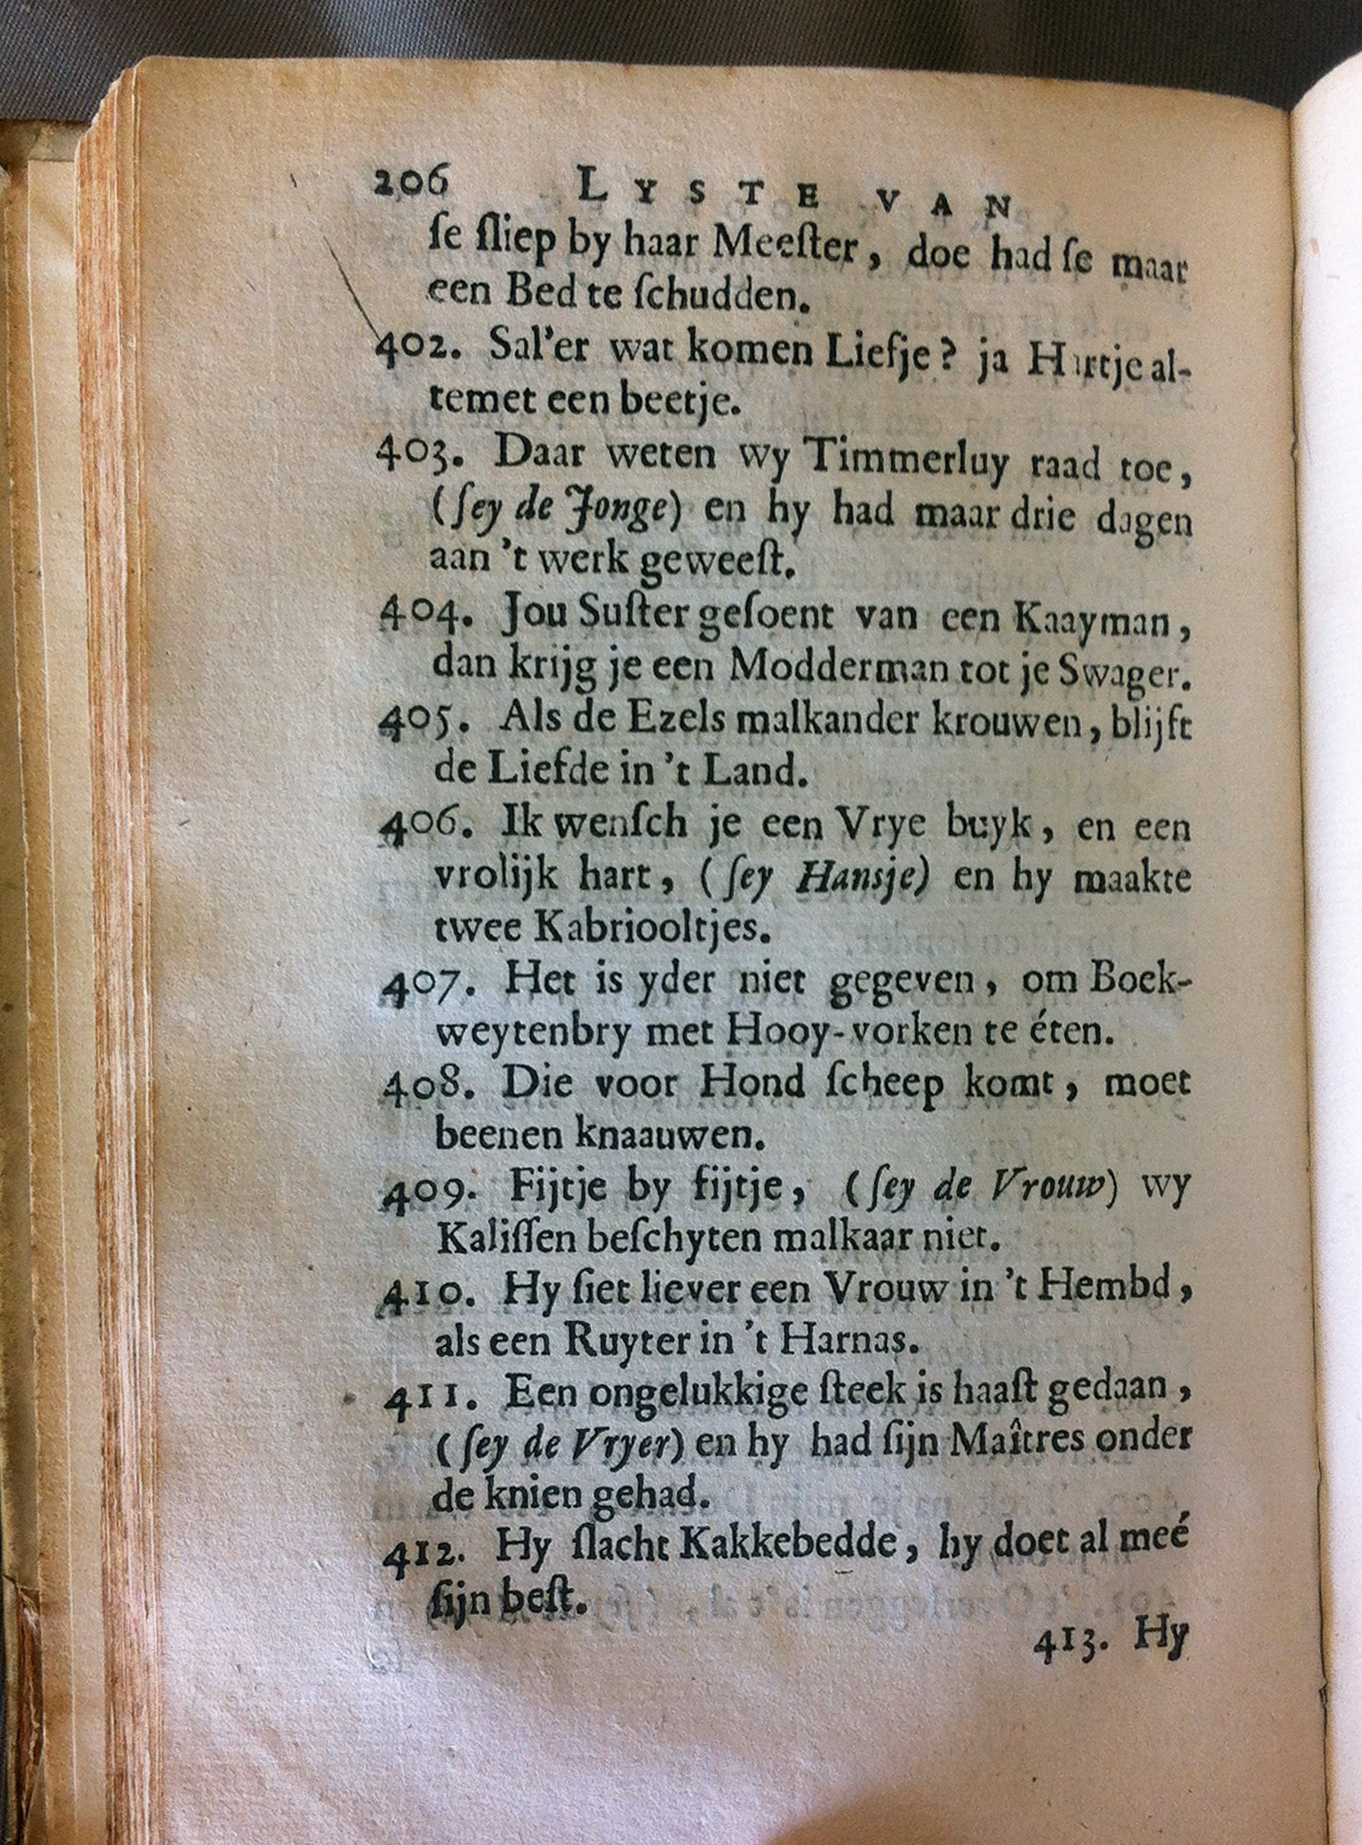 206 LYSTE VAN
ſe ſliep by haar Meeſter, doe had ſe maar
een Bed te ſchudden.
402. Sal'er wat komen Liefje? ja Hartje al-
temet een beetje.
403. Daar weten wy Timmerluy raad toe,
(ſey de Jonge) en hy had maar drie dagen
aan 't werk geweeſt.
404. Jou Suſter geſoent van een Kaayman,
dan krijg je een Modderman tot je Swager.
405. Als de Ezels malkander krouwen, blijft
de Liefde in 't Land.
406. Ik wenſch je een Vrye buyk, en een
vrolijk hart, (ſey Hansje) en hy maakte
twee Kabriooltjes.
407. Het is yder niet gegeven, om Boek-
weytenbry met Hooy-vorken te éten.
408. Die voor Hond ſcheep komt, moet
beenen knaauwen.
409. Fijtje by fijtje, (ſey de Vrouw) wy
Kaliſſen beſchyten malkaar niet.
410. Hy ſiet liever een Vrouw in 't Hembd,
als een Ruyter in 't Harnas.
411. Een ongelukkige ſteek is haaſt gedaan,
(ſey de Vryer) en hy had ſijn Maîtres onder
de knien gehad.
412. Hy ſlacht Kakkebedde, hy doet al meé
ſijn beſt.
413. Hy